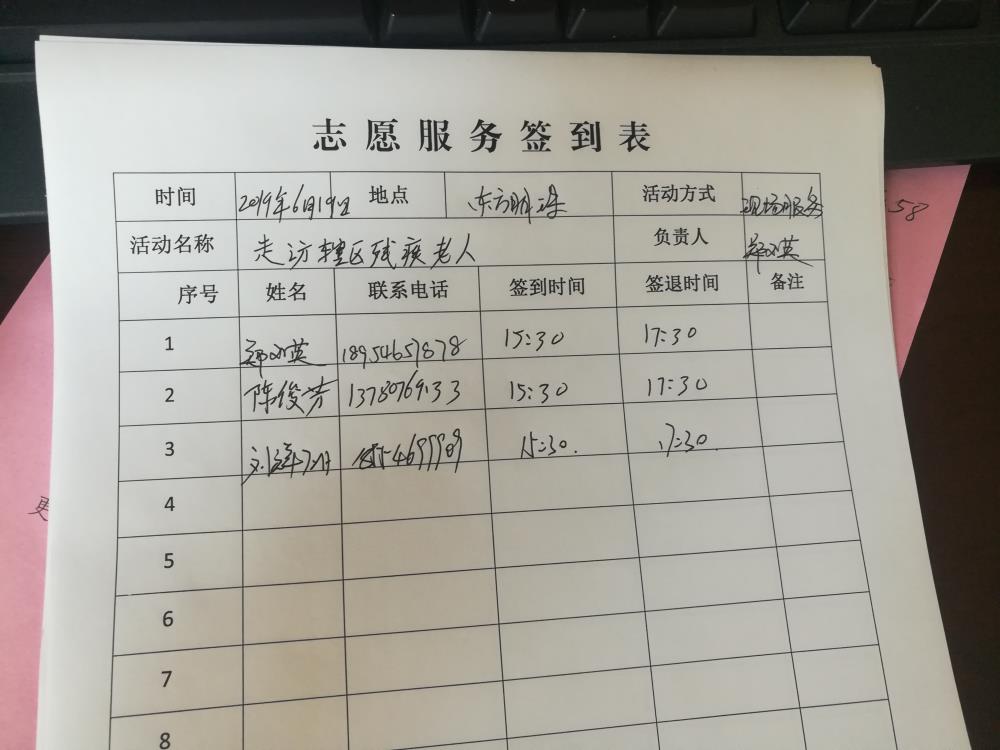 志愿服务签到表
时间 2019年6月19日 地点 东方明珠 活动方式 现场服务
活动名称 走访辖区残疾老人 负责人
序号 姓名 联系电话 签到时间 签退时间 备注
1 18954657878 15:30 17:30
2 陈俊芳 15:30 17:30
3 15:30. 17:30.
4
5
6
7
8
58